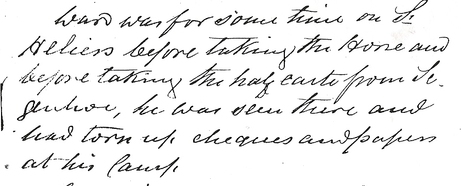 Ward was for some time on St.
Heliers before taking the Horse and
before taking the half carte from Se-
genhoe, he was seen there and
had torn up cheques and papers
at his Camp